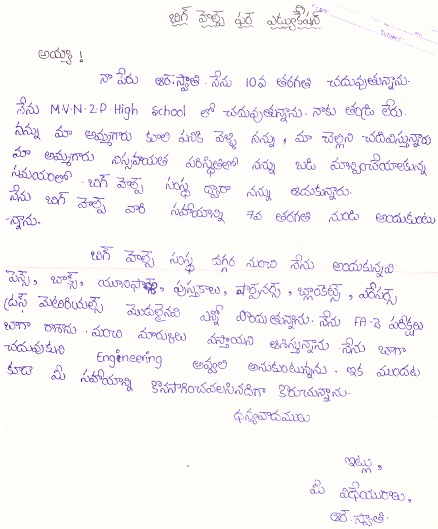 బిగ్ హెల్ప్ ఫర్ ఎడ్యుకేషన్
అయ్యా !
నా పేరు ఆర్.స్వాతి. నేను 10వ తరగతి చదువుతున్నాను.
నేను M.V.N.Z.P. High School లో చదువుతున్నాను. నాకు తండ్రి లేరు.
నన్ను మా అమ్మగారు కూలి పనికి వెళ్ళి నన్ను, మా చెల్లిని చదివిస్తున్నారు
మా అమ్మగారు నిస్సహాయత పరిస్థితిలో నన్ను బడి మాన్పించేయాలనుకున్న
సమయంలో. బిగ్ హెల్ప్ సంస్థ ద్వారా నన్ను ఆదుకున్నారు.
నేను బిగ్ హెల్ప్ వారి సహాయాన్ని 7వ తరగతి నుండి అందుకుంటు
-న్నాను.
బిగ్ హెల్ప్ సంస్థ దగ్గర నుంచి నేను అందుకున్నవి
పెన్స్, బాక్స్, యూనిఫార్మ్స్, పుస్తకాలు, షార్ప్‌నర్స్, బ్లాంకెట్స్, ఎరేసర్స్
డ్రస్ మెటీరియల్స్ మొదలైనవి ఎన్నో పొందుతున్నాను. నేను FA-2 పరీక్షలు
బాగా రాశాను. మంచి మార్కులు వస్తాయని ఆశిస్తున్నాను నేను బాగా
చదువుకుని Engineering అవ్వాలి అనుకుంటున్నను. ఇక ముందట
కూడా మీ సహాయాన్ని కొనసాగించవలసినదిగా కోరుచున్నాను.
ధన్యవాదములు
ఇట్లు,
మీ విధేయురాలు,
ఆర్.స్వాతి.